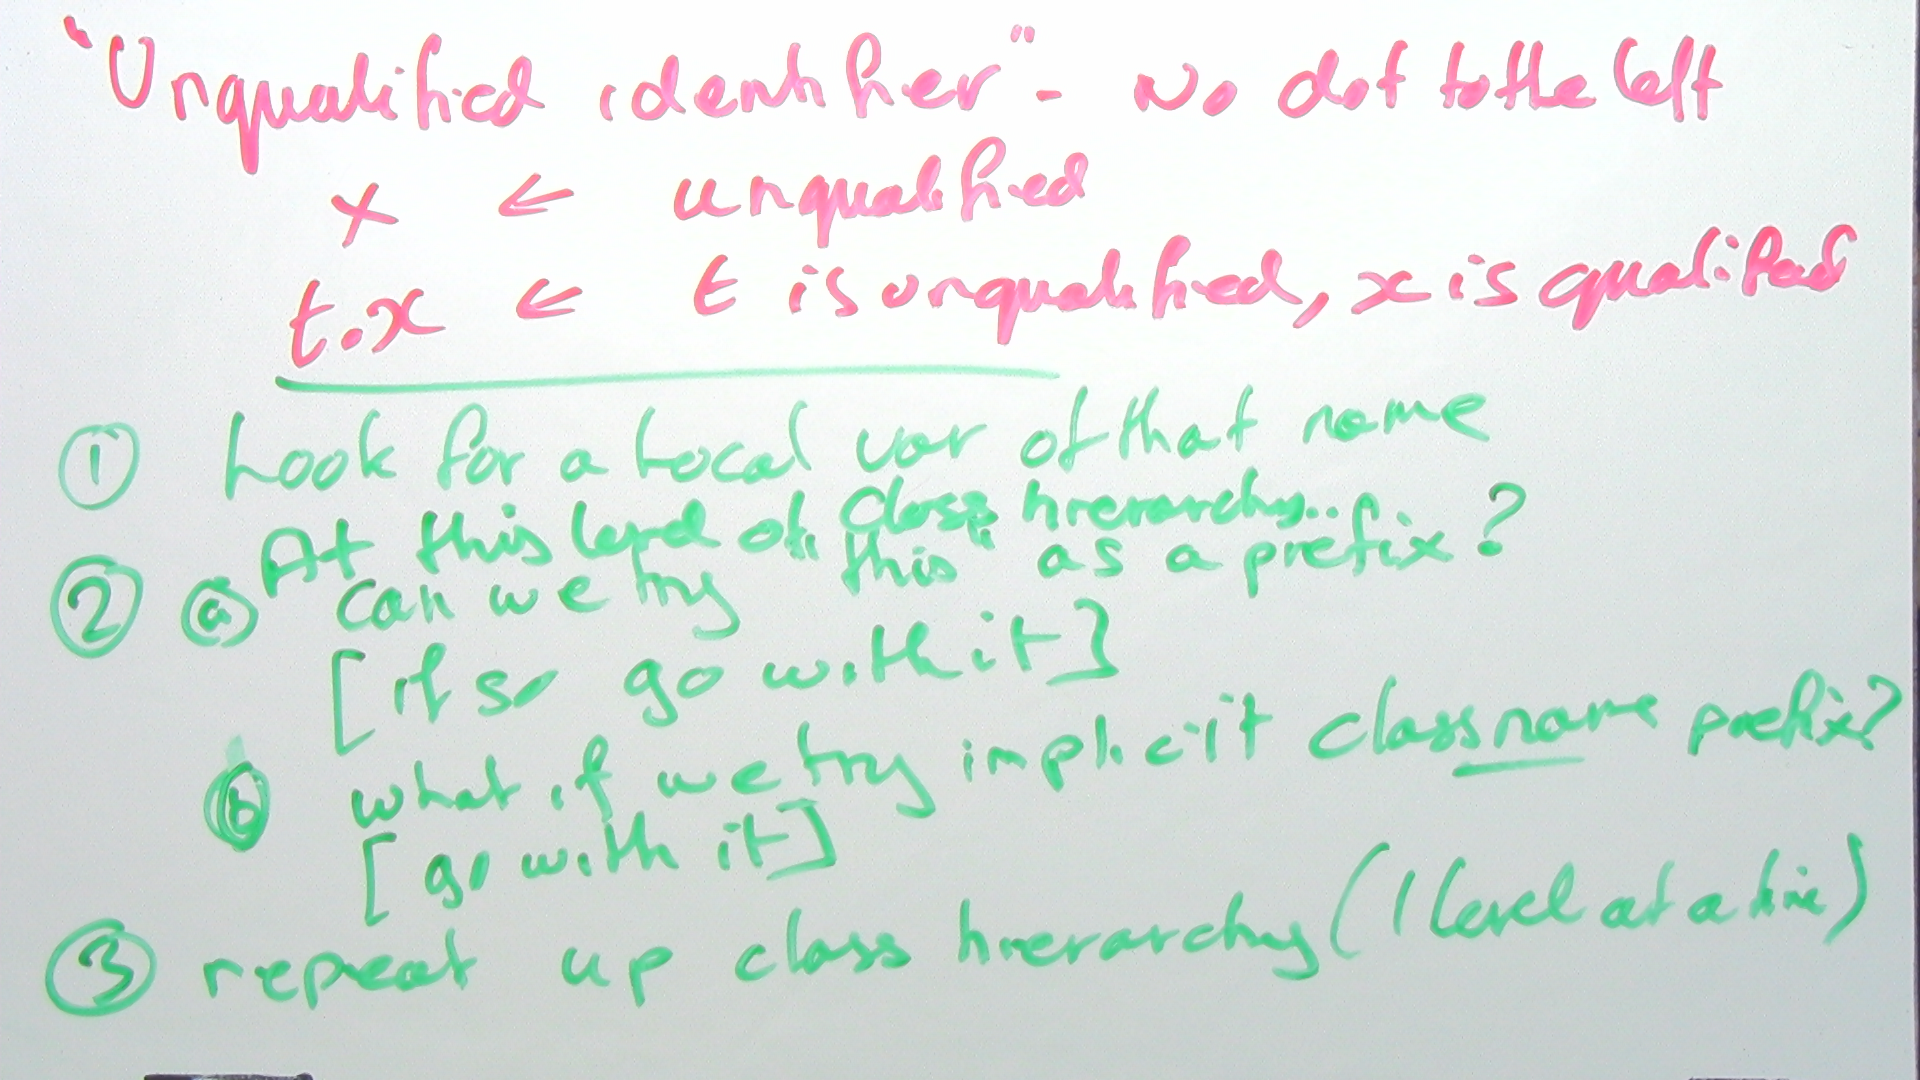 "Unqualified identifier" - No dot to the left
x ← unqualified
t.x ← t is unqualified, x is qualified
① Look for a local var of that name
At this level of class hierarchy..
② ⓐ can we try "this" as a prefix?
[if so go with it]
ⓑ what if we try implicit classname prefix?
[go with it]
③ repeat up class hierarchy (1 level at a time)